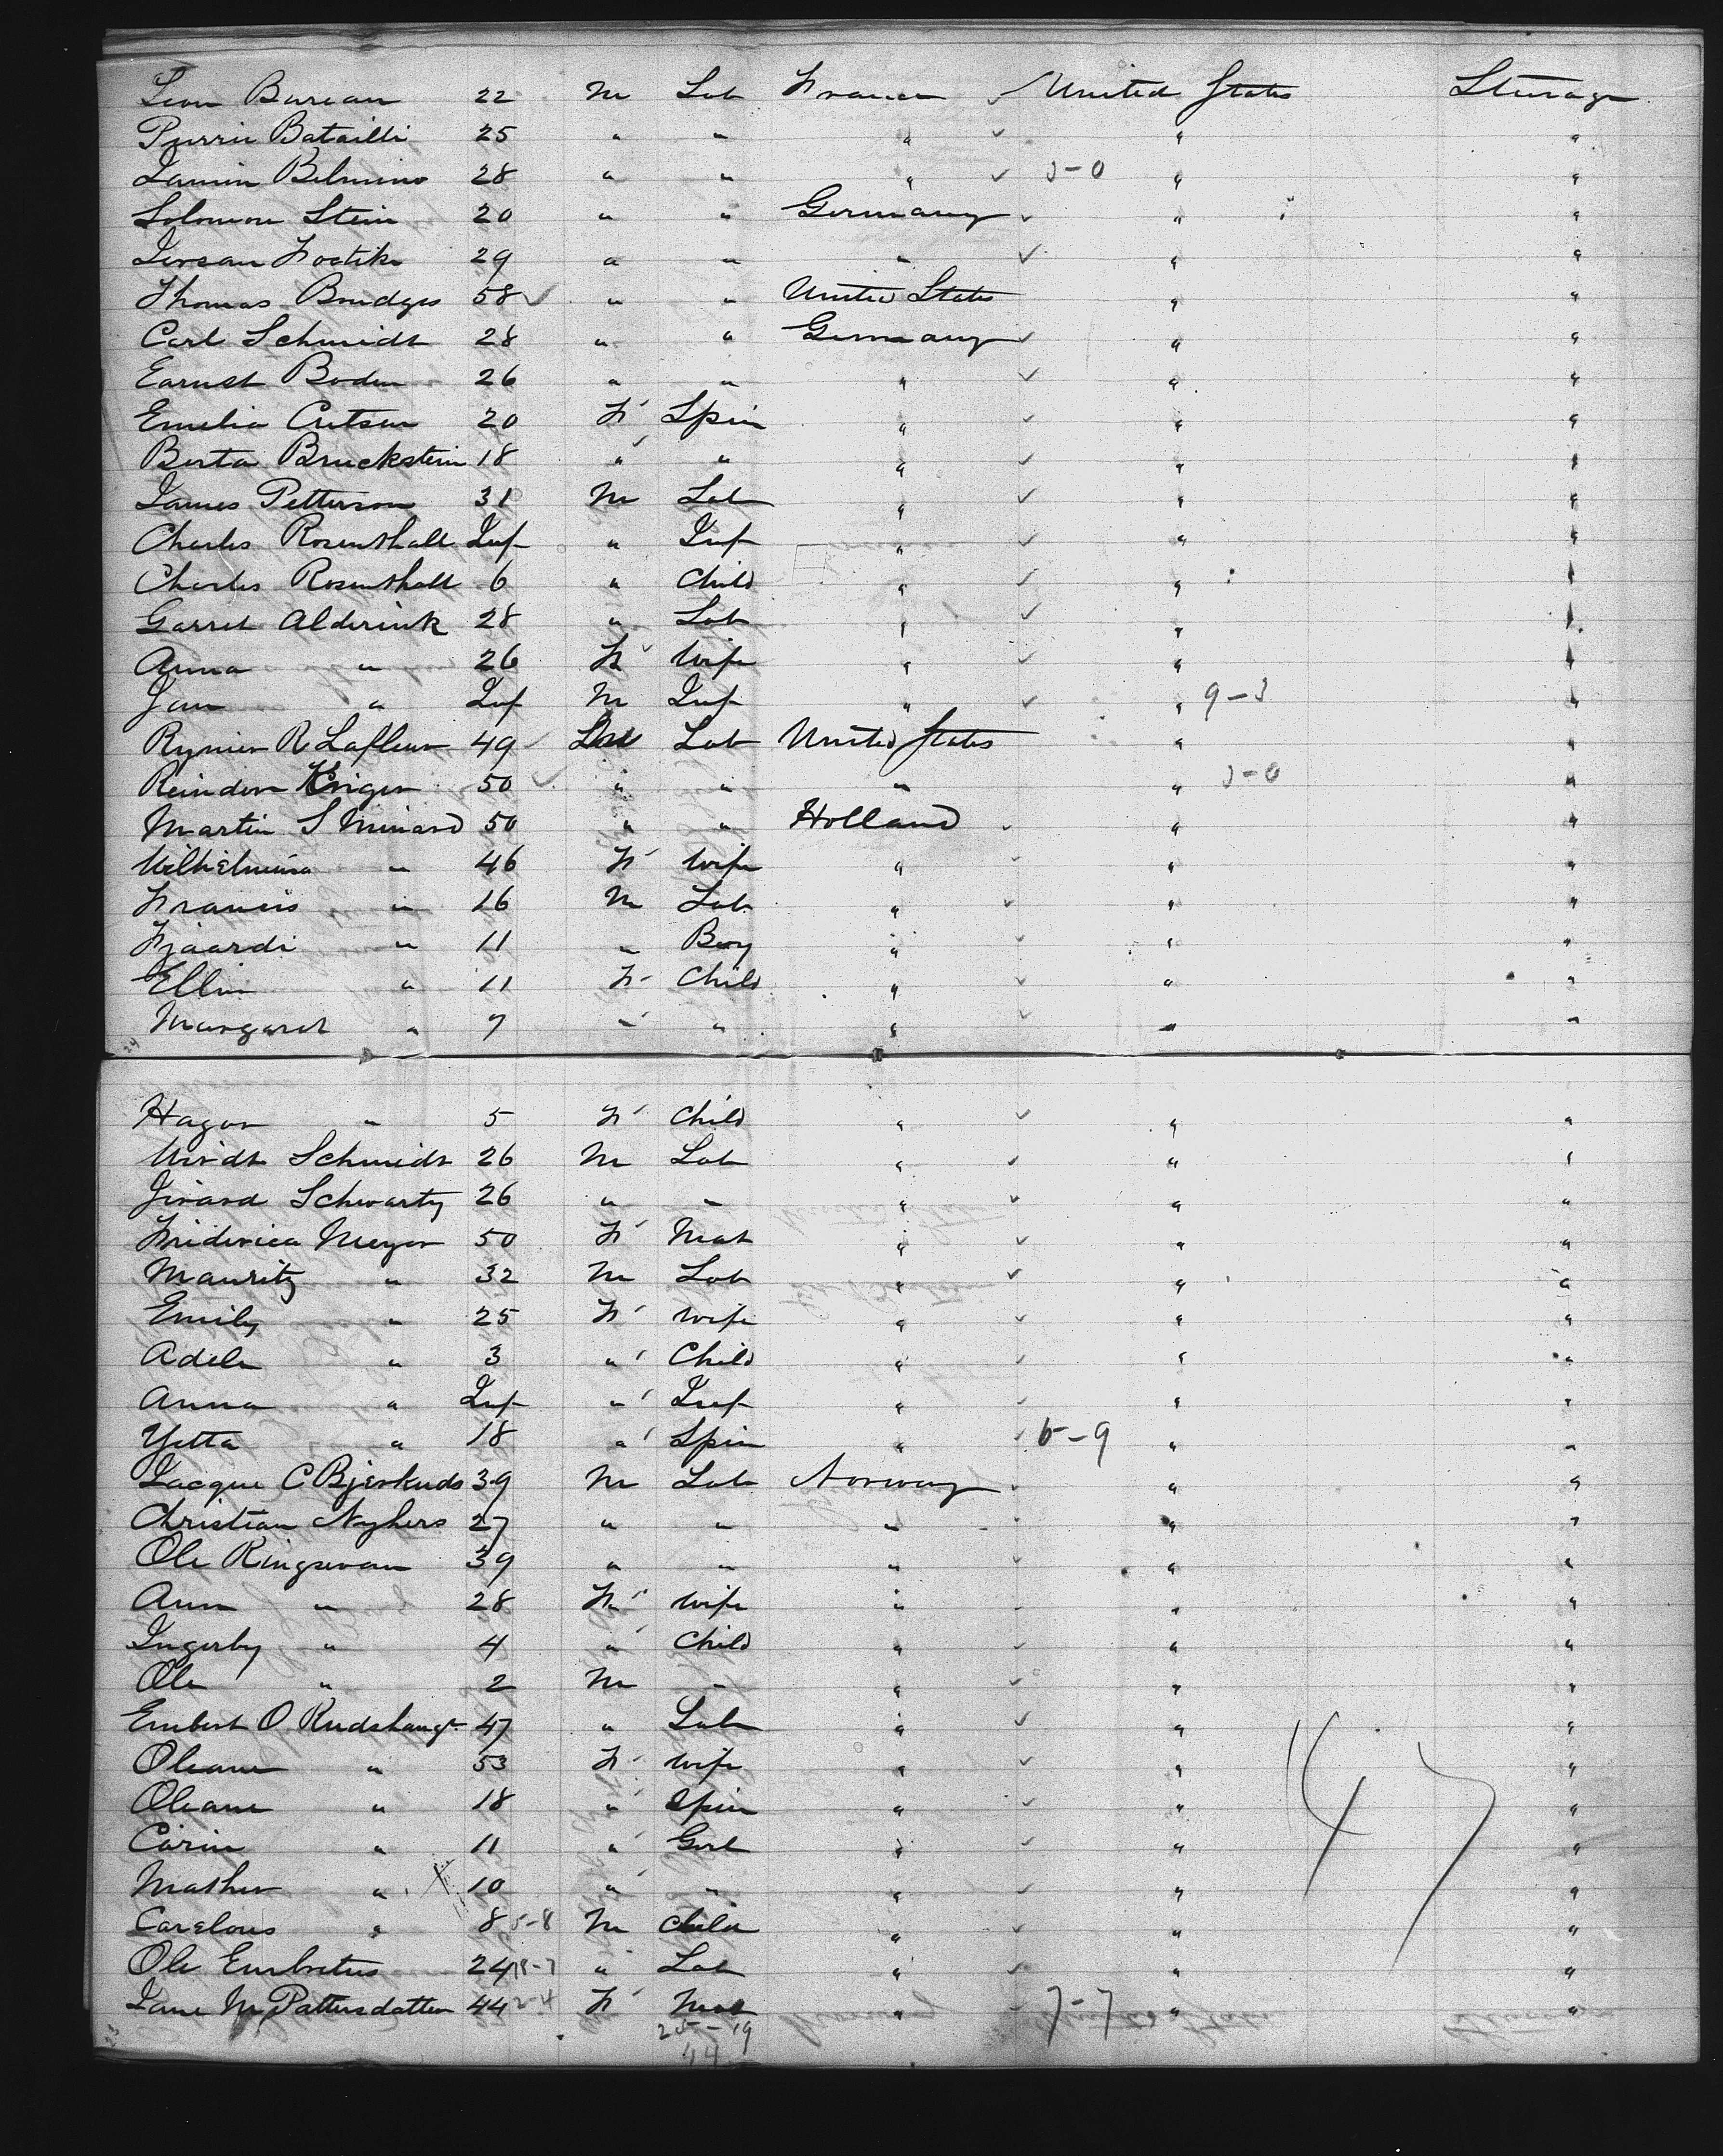 Leon Bureau 22 M Lab France ✓ United States Steerage
Purrie Batailli 25 " " " ✓ " "
Lamin Belmino 28 " " " ✓ 3-0 " "
Solomon Stein 20 " " Germany ✓ " "
29 " " " ✓ " "
Thomas Bridges 58 ✓ " " United States " "
Carl Schmidt 28 " " Germany ✓ " "
Earnst Boden 26 " " " ✓ " "
Emelia 20 F Spin " ✓ " "
Berta Bruckstein 18 " " " ✓ " "
James Petterson 31 M Lab " ✓ " "
Charles Rosenthall Inf " Inf " ✓ " "
Charles Rosenthall 6 " Child " ✓ " "
Garret Alderink 28 " Lab " ✓ " "
Anna " 26 F Wife " ✓ " "
Jan " Inf M Inf " ✓ " 9-3 "
Rynier R Lafleur 49 ✓ Lab United States " "
Reinder Kriger 50 ✓ " " " " 3-0 "
Martin S Minard 50 " " Holland ✓ " "
Wilhelmina " 46 F Wife " ✓ " "
Francis " 16 M Lab " ✓ " "
Fjaardi " 11 " Boy " ✓ " "
Ellin " 11 F Child " ✓ " "
Margaret " 7 " " " ✓ " "
24
Hagar " 5 F Child " ✓ " "
Schmidt 26 M Lab " ✓ " "
Schwartz 26 " " " ✓ " "
Friderica Meyer 50 F Mat " ✓ " "
Mauritz " 32 M Lab " ✓ " "
Emily " 25 F Wife " ✓ " "
Adele " 3 " Child " ✓ " "
Anna " Inf " Inf " ✓ " "
Yetta " 18 " Spin " ✓ 6-9 " "
Jacque C Bjerkuds 39 M Lab Norway ✓ " "
Christian Nyhers 27 " " " ✓ " "
Ole Ringsevan 39 " " " ✓ " "
Ann " 28 F Wife " ✓ " "
Ingerby " 4 " Child " ✓ " "
Ole " 2 M " " ✓ " "
Embert O Rudshaug 47 " Lab " ✓ " "
Oleane " 53 F Wife " ✓ " "
Oleane " 18 " Spin " ✓ " "
Carin " 11 " Girl " ✓ " "
Mather " X 10 " " " ✓ " "
Carelous " 8 5-8 M Child " ✓ " "
Ole Embretus 24 18-7 " Lab " ✓ " "
Jane M Pattersdatter 44 2-4 F Mat " ✓ 7-7 " "
47
25-19
44
23